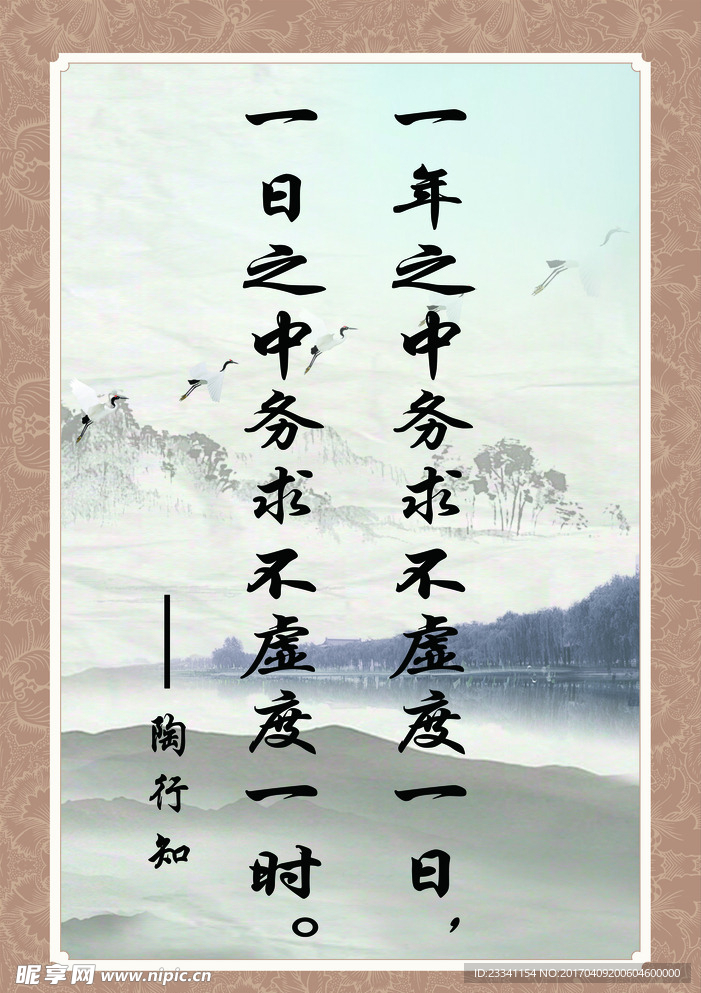 一年之中务求不虚度一日，
一日之中务求不虚度一时。
——陶行知
昵享网 www.nipic.cn
ID:23341154 NO:20170409200604600000